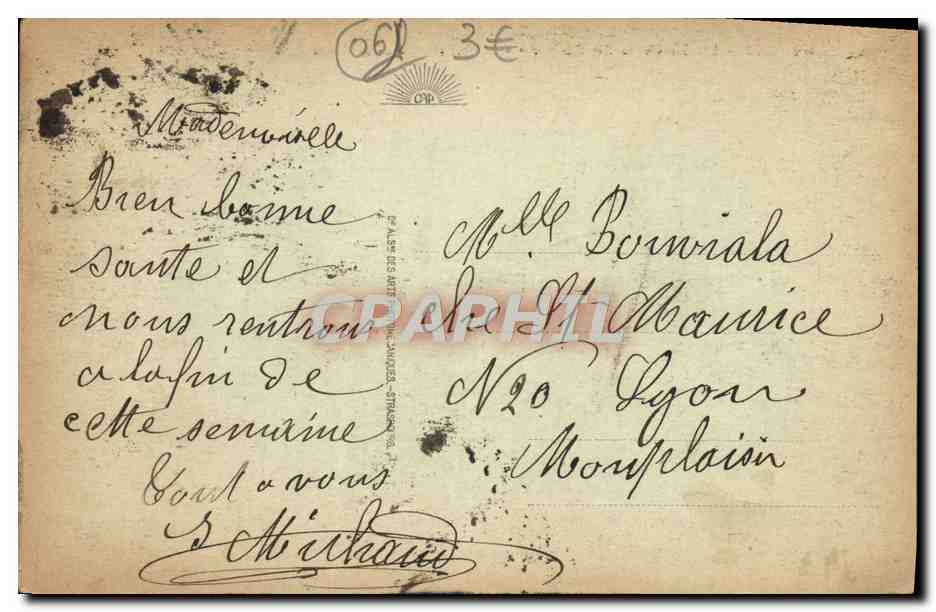 06
3€
CAP
Mademoiselle
Bien bonne
sante et
nous rentrons
a la fin de
cette semaine
Tout a vous
Michaud
CIE ALSNE DES ARTS STRASBOURG
Mlle Bouviala
che St Maurice
N 20 Lyon
Monplaisir
CPAPHIL